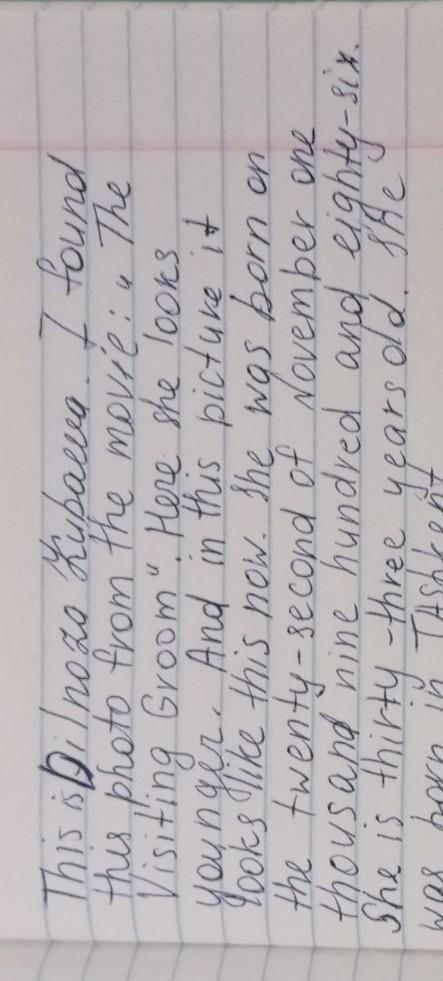 This is Dilnoza Kubaeva. I found
this photo from the movie: „ The
Visiting Groom". Here she looks
younger. And in this picture it
looks like this now. She was born on
the twenty-second of November one
thousand nine hundred and eighty-six.
She is thirty-three years old. She
was born in TAshkent